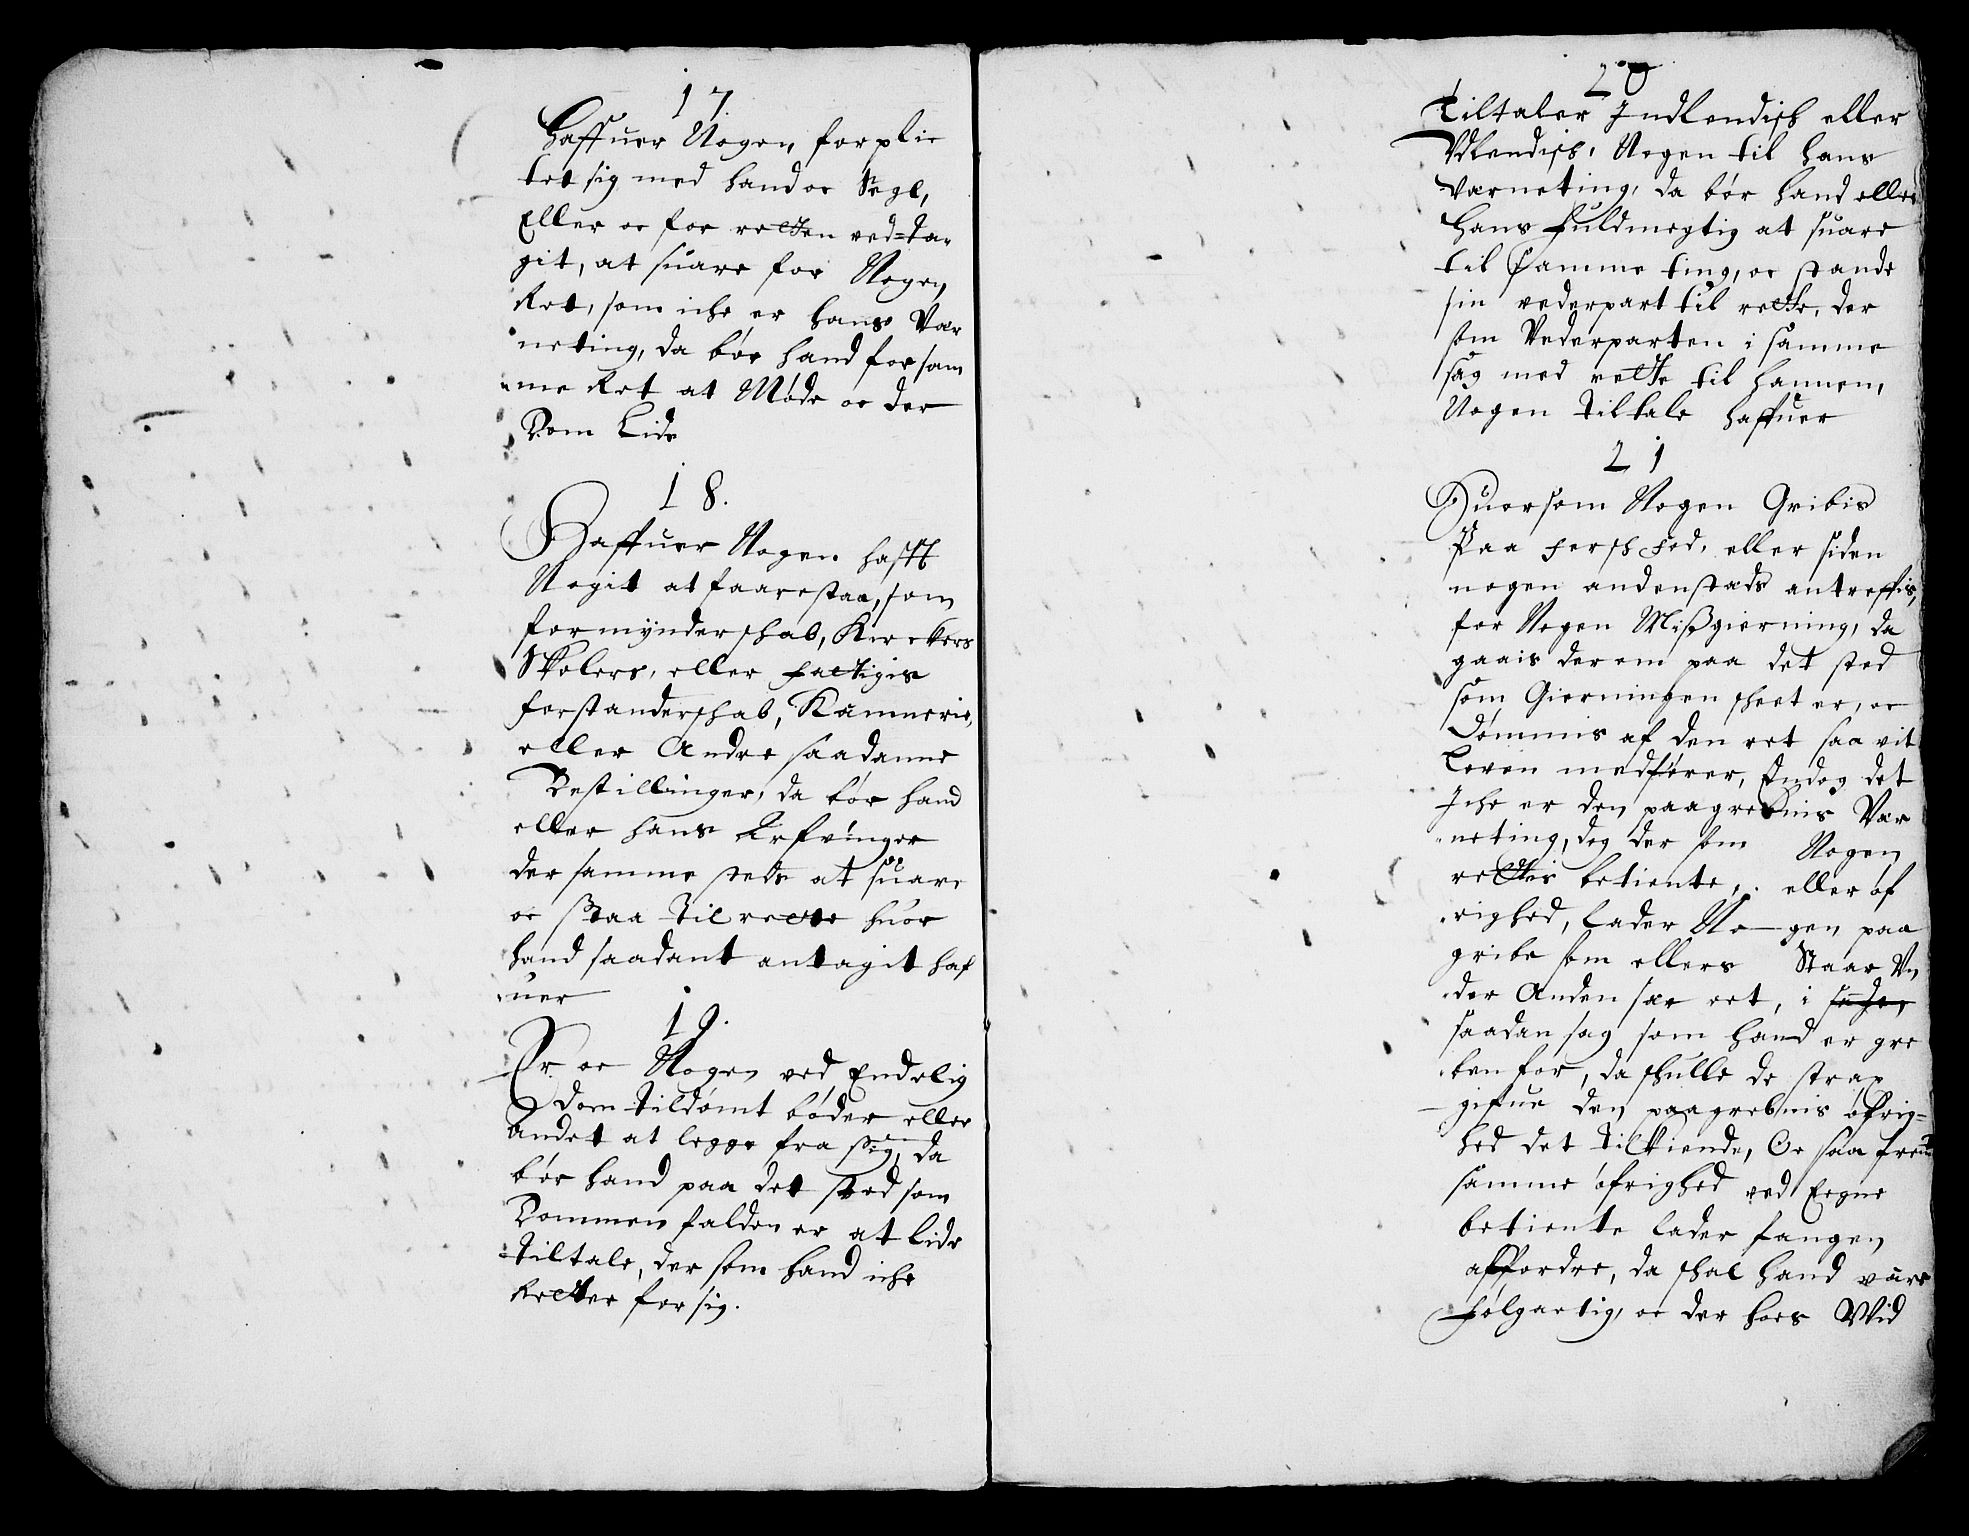 17.
Haffuer Nogen forplic
tet sig med hand oc Segl,
Eller oc for retten ved=ta-
git, at suare for Nogen
Ret, som iche er hans Vær
neting, da bør hand for sam
me Ret at Møde oc der
Dom Lide
18.
Haffuer Nogen hafft
Nogit at faarestaa, som
formynderschab, Kirckers
Skolers, eller fattigis
forstanderschab, Kæmnerie,
eller Andre saadanne
Bestillinger, da bør hand
eller hans Arfvinger
der samme steds at suare
oc staa til rette huor
hand saadant antagit haf
uer
19.
Er oc Nogen ved Endelig
Dom tildømt bøder eller
Andet at legge fra sig, da
bør hand paa det sted som
Dommen falden er at lide
Tiltale, der som hand iche
Retter for sig.
20
Tiltaler Indlendisch eller
Vdlendisch, Nogen til hans
Værneting, da bør hand eller
Hans fuldmegtig at suare
til samme ting, oc stande
sin vederpart til rette, der
som Vederparten i samme
sag med rette til hannem,
Nogen Tiltale haffuer
21
Huorsom Nogen Gribis
Paa fersch fød, eller siden
nogen andenstads antreffis,
for Nogen Mißgierning, da
gaais derom paa det sted
som Gierningen scheet er, oc
Dømmis af den ret saa vit
Loven medfører, Endog det
Iche er den paagrebnis Vær
neting, dog der som Nogen
rettis betiente, eller øf
righed, lader No-gen paa
gribe som ellers Staar Vn
der Anden sær ret, i
saadan sag som hand er gre
ben for, da schulle de strax
gifue den paagrebnis øfrig=
hed det tilkiende, Oc saa frem
samme øfrighed ved Eegne
betiente lader fangen
affordre, da schal hand være
følgactig, oc der hoes Wid